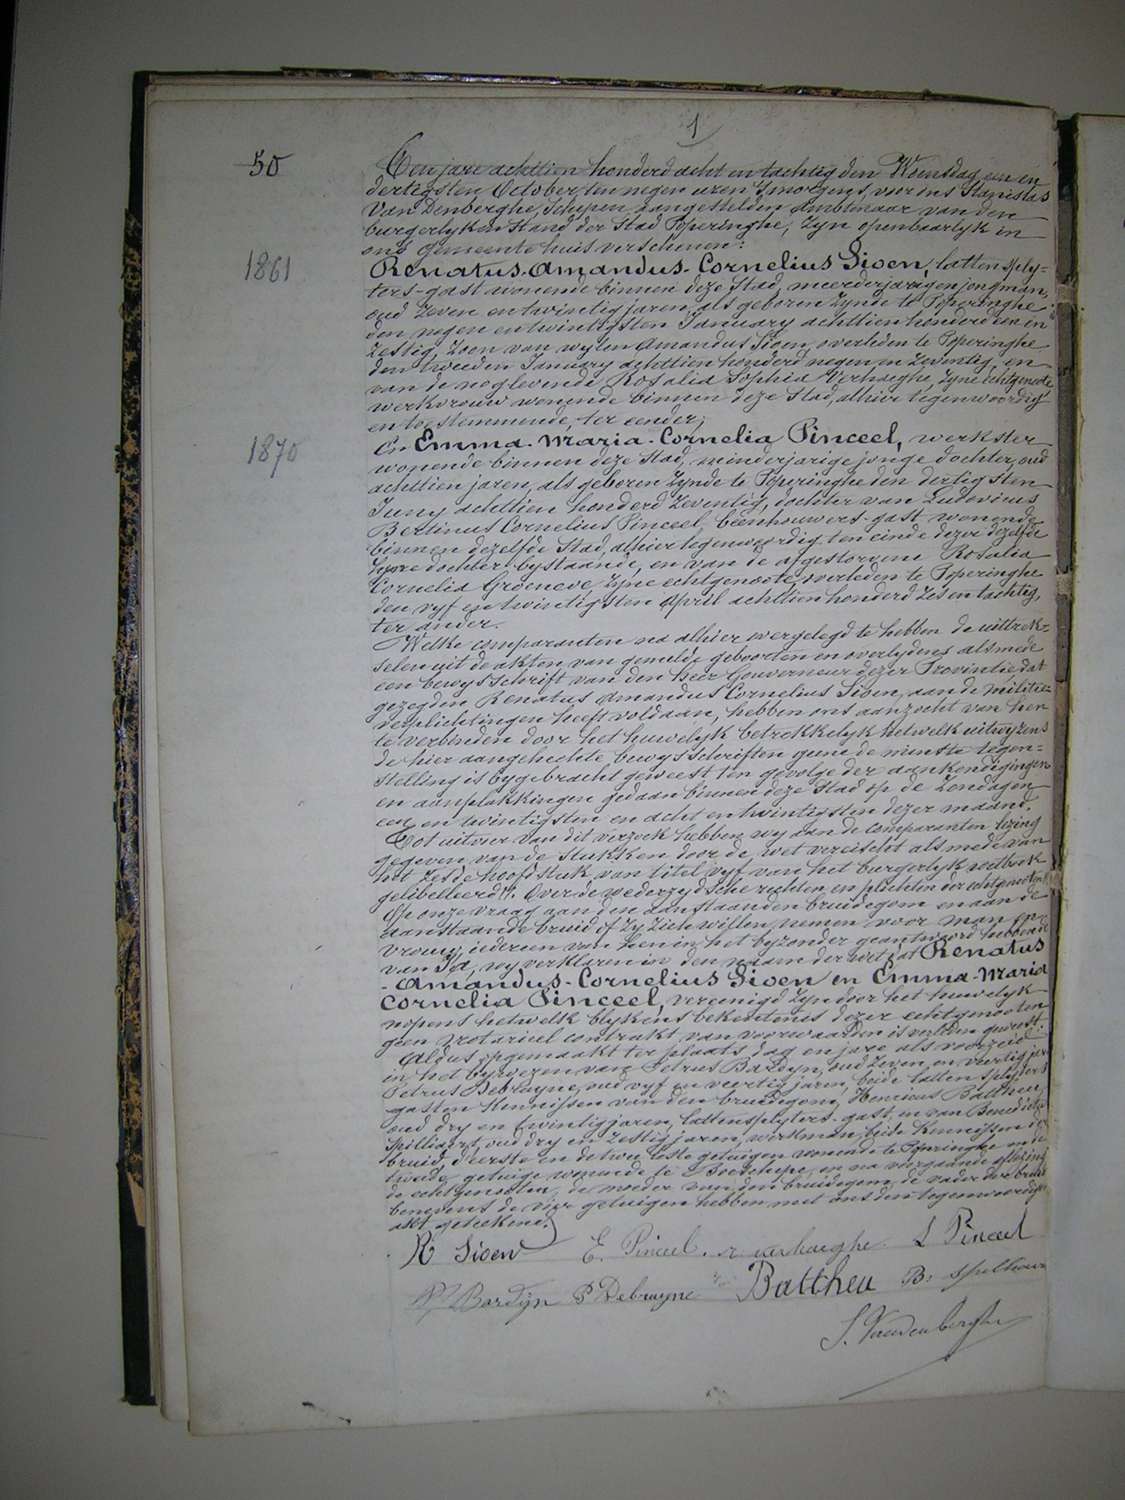 1
50
Een jare achttien honderd acht en tachtig den Woensdag een en
dertigsten October, ten negen uren 's morgens, voor ons Stanislas
Van Denberghe, Schepen, aangestelden ambtenaar van den
burgerlyken Stand der Stad Poperinghe, zyn openbaarlyk in
ons gemeente huis verschenen:
1861
Renatus-Amandus-Cornelius Sioen, latten sply-
ters-gast wonende binnen deze Stad, meerderjarigen jongman,
oud zeven en twintig jaren, als geboren zynde te Poperinghe
den negen en twintigsten January achttien honderd een en
zestig, zoon van wylen Amandus Sioen, overleden te Poperinghe
den tweeden January achttien honderd negen en zeventig, en
van de noglevende Rosalia Sophia Verhaeghe, zyne echtgenoote
werkvrouw wonende binnen deze Stad, alhier tegenwoordig
en toestemmende, ter eender;
1870
En Emma-Maria-Cornelia Pinceel, werkster
wonende binnen deze Stad, minderjarige jonge dochter, oud
achttien jaren, als geboren zynde te Poperinghe den dertigsten
Juny achttien honderd zeventig, dochter van Ludovicus
Bertinus Cornelius Pinceel, beenhouwers-gast wonende
binnen dezelfde Stad, alhier tegenwoordig ten einde dezer dezelfde
zyne dochter bystaande, en van de afgestorvene Rosalia
Cornelia Groeneve, zyne echtgenoote, overleden te Poperinghe
den vyf en twintigsten April achttien honderd zes en tachtig,
ter ander.
Welke comparanten na alhier neergelegd te hebben de uittrek-
selen uit de akten van gemelde geboorten en overlydens alsmede
een bewysschrift van den Heer Gouverneur dezer Provintie dat
gezegden Renatus Amandus Cornelius Sioen, aan de militie-
verplichtingen heeft voldaan, hebben ons aanzocht van hen
te verbinden door het huwelyk betrekkelyk hetwelk uitwyzens
de hier aangehechte bewysschriften geene de minste tegen-
stelling is bygebracht geweest ten gevolge der aankondigingen
en aanplakkingen gedaan binnen deze Stad op de Zondagen
een en twintigsten en acht en twintigsten dezer maand.
Tot uitvoer van dit verzoek hebben wy aan de comparanten lezing
gegeven van de stukken door de wet vereischt alsmede van
het zesde hoofdstuk van titel vyf van het burgerlyk wetboek
gelibelleerd: Over de wederzydsche rechten en plichten der echtgenooten.
Op onze vraag aan den aanstaanden bruidegom en aan de
aanstaande bruid of zy zich willen nemen voor man en
vrouw, iedereen van hen in het byzonder geantwoord hebbende
van Ja, wy verklaren in den naam der wet dat Renatus
-Amandus-Cornelius Sioen en Emma-Maria
Cornelia Pinceel, vereenigd zyn door het huwelyk
nopens hetwelk blykens bekentenis dezer echtgenooten
geen notarieel contrakt van voorwaarden is verleden geweest.
Aldus opgemaakt ter plaats dag en jare als voorzeid
in het bywezen van Petrus Bardyn, oud zeven en veertig jaren
Petrus Debruyne, oud vyf en veertig jaren, beide latten splyters
gasten Kennissen van den bruidegom, Henricus Battheu,
oud dry en twintig jaren, lattensplyters-gast en van Benedictus
oud dry en zestig jaren, werkman, beide Kennissen der
bruid, d'eerste en de twee leste getuigen wonende te Poperinghe en de
tweede getuige wonende te Boeschepe, en na voorgaande aflezing
de echtgenooten, de moeder van den bruidegom, de vader der bruid
benevens de vier getuigen hebben met ons den tegenwoordigen
akt geteekend.
R Sioen E. Pinceel r verhaeghe L Pinceel
P Bardyn P Debruyne Battheu B.
S. Vandenberghe